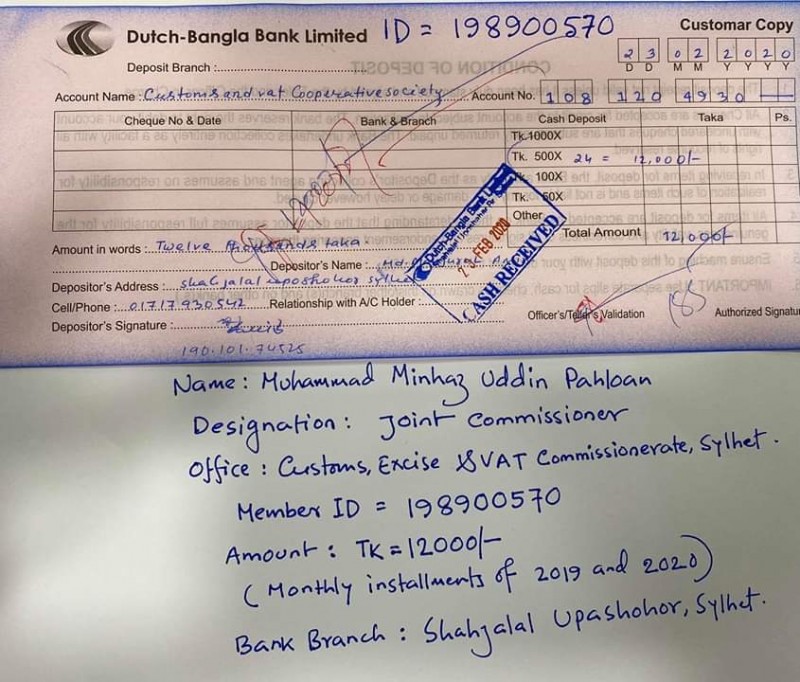 Dutch-Bangla Bank Limited ID = 198900570 Customar Copy
2 3 0 2 2 0 2 0
D D M M Y Y Y Y
Deposit Branch :
Account Name : Customs and vat Cooperative society Account No. 108 120 4930
Cheque No & Date Bank & Branch Cash Deposit Taka Ps.
Tk.1000X
Tk. 500X 24 = 12,000/-
Tk. 100X
Tk. 50X
Other
Total Amount 12,000/-
Amount in words : Twelve thousands taka
Depositor's Name : Md.
Depositor's Address : shahjalal uposhohor sylhet
Cell/Phone : 01717930542 Relationship with A/C Holder :
Depositor's Signature :
190.101.74525
Officer's/Teller's Validation Authorized Signatu
Dutch-Bangla Bank Limited
FEB 2020
CASH RECEIVED
Name : Muhammad Minhaz Uddin Pahloan
Designation : Joint Commissioner
Office : Customs, Excise & VAT Commissionerate, Sylhet.
Member ID = 198900570
Amount : TK = 12000/-
(Monthly installments of 2019 and 2020)
Bank Branch : Shahjalal Upashohor, Sylhet.